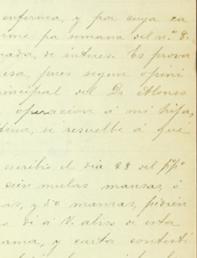 enferma, y por cuya ca
rme pa semana del n.º 8.
rada, de interes. Es prova
esa, pues segun opini
rincipal del Dr Alonso
operacion á mi hija,
dina, se resuelve á que
escribio el dia 28 del ppº
seis mulas mansas, ó
as, y 50 mansas, pidien
di á V. aviso si esta
ama, y cuitar contesti